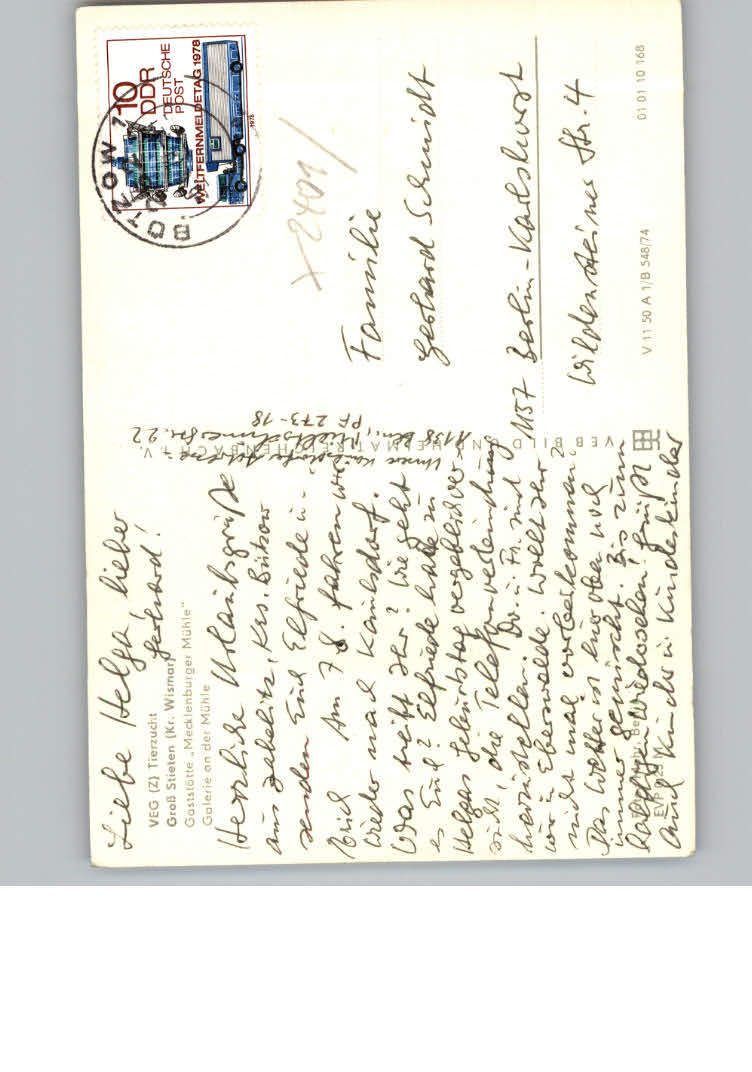 Liebe Helga, lieber
Gerhard!
VEG (Z) Tierzucht
Groß Stieten (Kr. Wismar)
Gaststätte „Mecklenburger Mühle"
Galerie an der Mühle
Herzliche Urlaubsgrüße
aus Zehelitz, Krs. Bützow
senden Euch Elfriede u.
Erich. Am 7.8. fahren wir
wieder nach Kaulsdorf.
Was treibt Ihr? Wie geht
es Euch? Elfriede hatte zu
Helgas Geburtstag vergeblich ver-
sucht, die Telefonverbindung
herzustellen. Do. u. Fr. sind
wir in Eberswalde. Wollt Ihr
nicht mal vorbeikommen?
Das Wetter ist hier oben noch
immer gemischt. Bis zum
baldigen Wiedersehen! Grüßt
auch Kinder u. Kindeskinder
Unsere Kaulsdorfer Adresse:
1138 Bln.,
22
PF 273-18
VEB BILD UND HEIMAT REICHENBACH i. V.
10
DDR
DEUTSCHE
POST
WELTFERNMELDETAG 1978
1978
BÜTZOW
x 2401/
Familie
Gerhard Schmidt
1157 Berlin-Karlshorst
Wildensteiner Str. 4
V 11 50 A 1/B 548/74
01 01 10 168